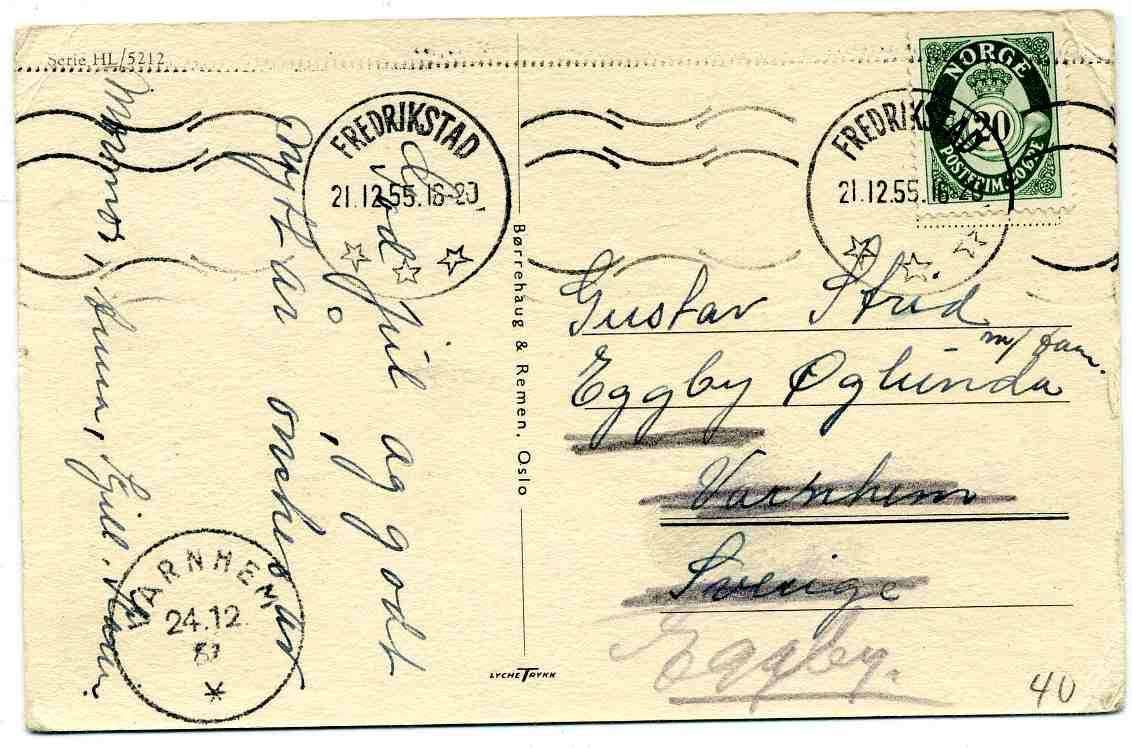 Serie HL/5212
FREDRIKSTAD
21.12.55.16-20
FREDRIKSTAD
21.12.55.16-20
NORGE
20
POSTFRIM.
Jul og godt
Nytt år ønskes av
Mormor, Anna, Kjell.
VARNHEM
24.12.
Børrehaug & Remen, Oslo
LYCHE TRYKK
Gustav Strid
m/ fam.
Eggby Øglunda
Varnhem
Sverige
Eggby.
40